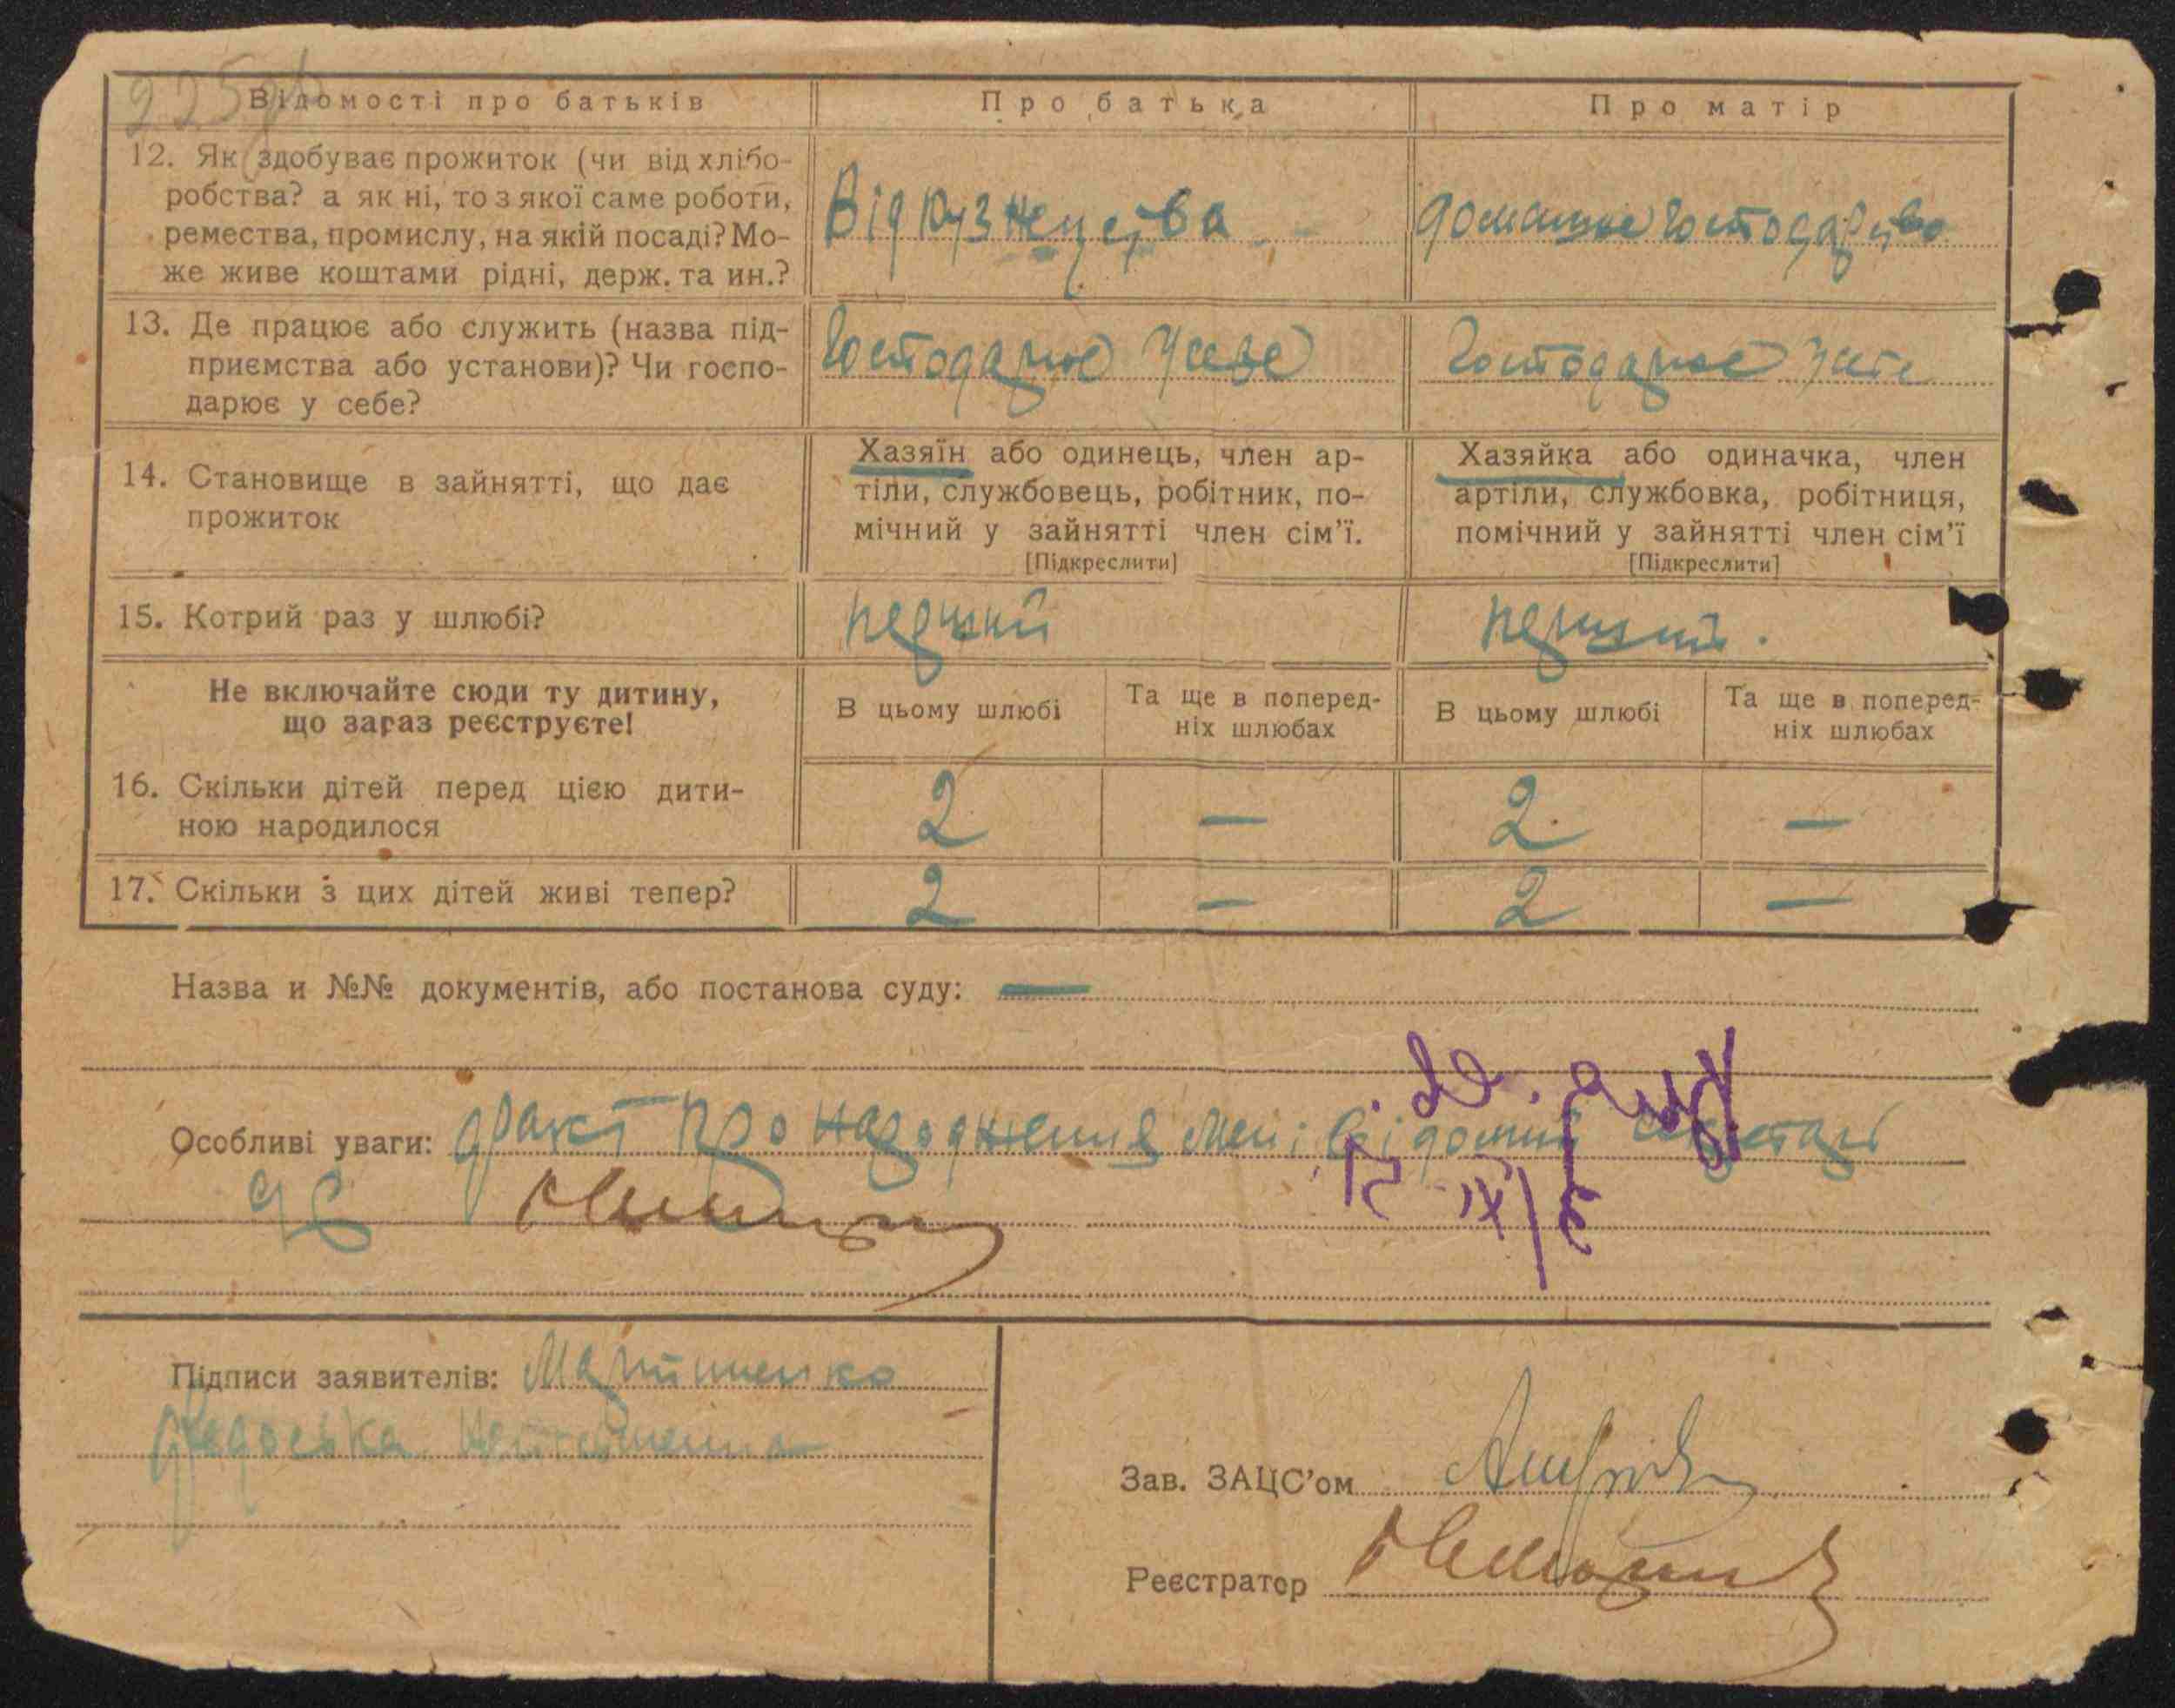 Відомості про батьків
Про батька
Про матір
12. Як здобуває прожиток (чи від хлібо-
робства? а як ні, то з якої саме роботи,
ремества, промислу, на якій посаді? Мо-
же живе коштами рідні, держ. та ин.?
Від кузнецства
домашнє господарство
13. Де працює або служить (назва під-
приємства або установи)? Чи госпо-
дарює у себе?
Господарює у себе
Господарює у себе
14. Становище в зайнятті, що дає
прожиток
Хазяїн або одинець, член ар-
тіли, службовець, робітник, по-
мічний у зайнятті член сім'ї.
[Підкреслити]
Хазяйка або одиначка, член
артіли, службовка, робітниця,
помічний у зайнятті член сім'ї
[Підкреслити]
15. Котрий раз у шлюбі?
перший
перший.
Не включайте сюди ту дитину,
що зараз реєструєте!
В цьому шлюбі
Та ще в поперед-
ніх шлюбах
В цьому шлюбі
Та ще в поперед-
ніх шлюбах
16. Скільки дітей перед цією дити-
ною народилося
2 — 2 —
17. Скільки з цих дітей живі тепер?
2 — 2 —
Назва и №№ документів, або постанова суду: —
Особливі уваги: факт про народження мені відомий секретарь
Підписи заявителів: Мартиненко
Зав. ЗАЦС'ом
Реєстратор